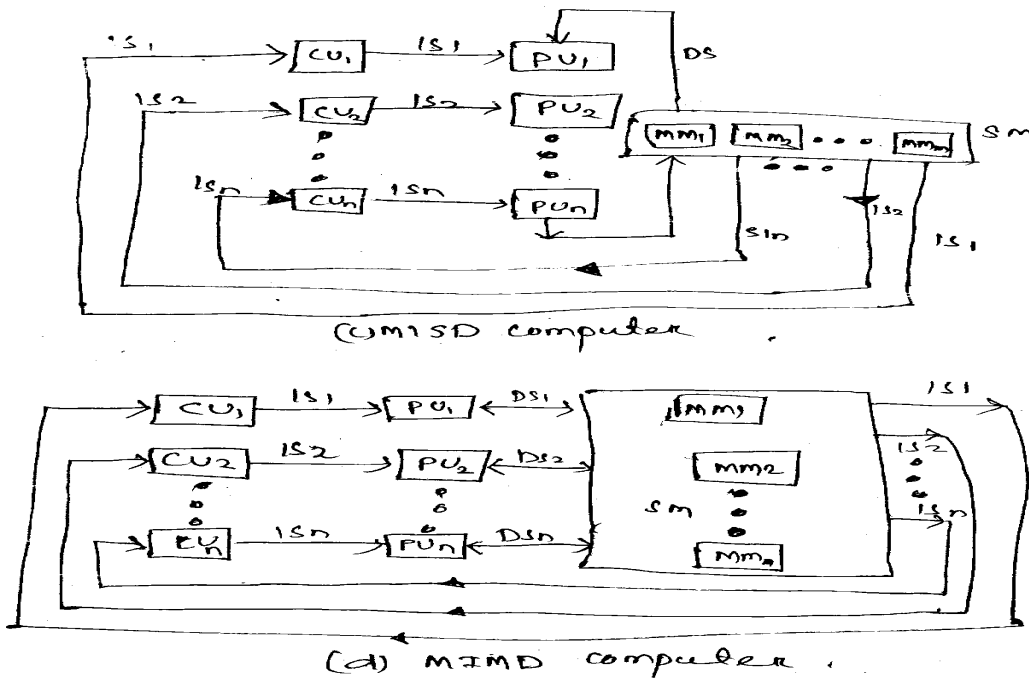 IS1 CU1 IS1 PU1 DS
IS2 CU2 IS2 PU2 MM1 MM2 MMm SM
ISn CUn ISn PUn SIn IS2 IS1
(c) MISD computer
CU1 IS1 PU1 DS1 MM1 IS1
CU2 IS2 PU2 DS2 MM2 IS2
SM
CUn ISn PUn DSn MMn ISn
(d) MIMD computer.